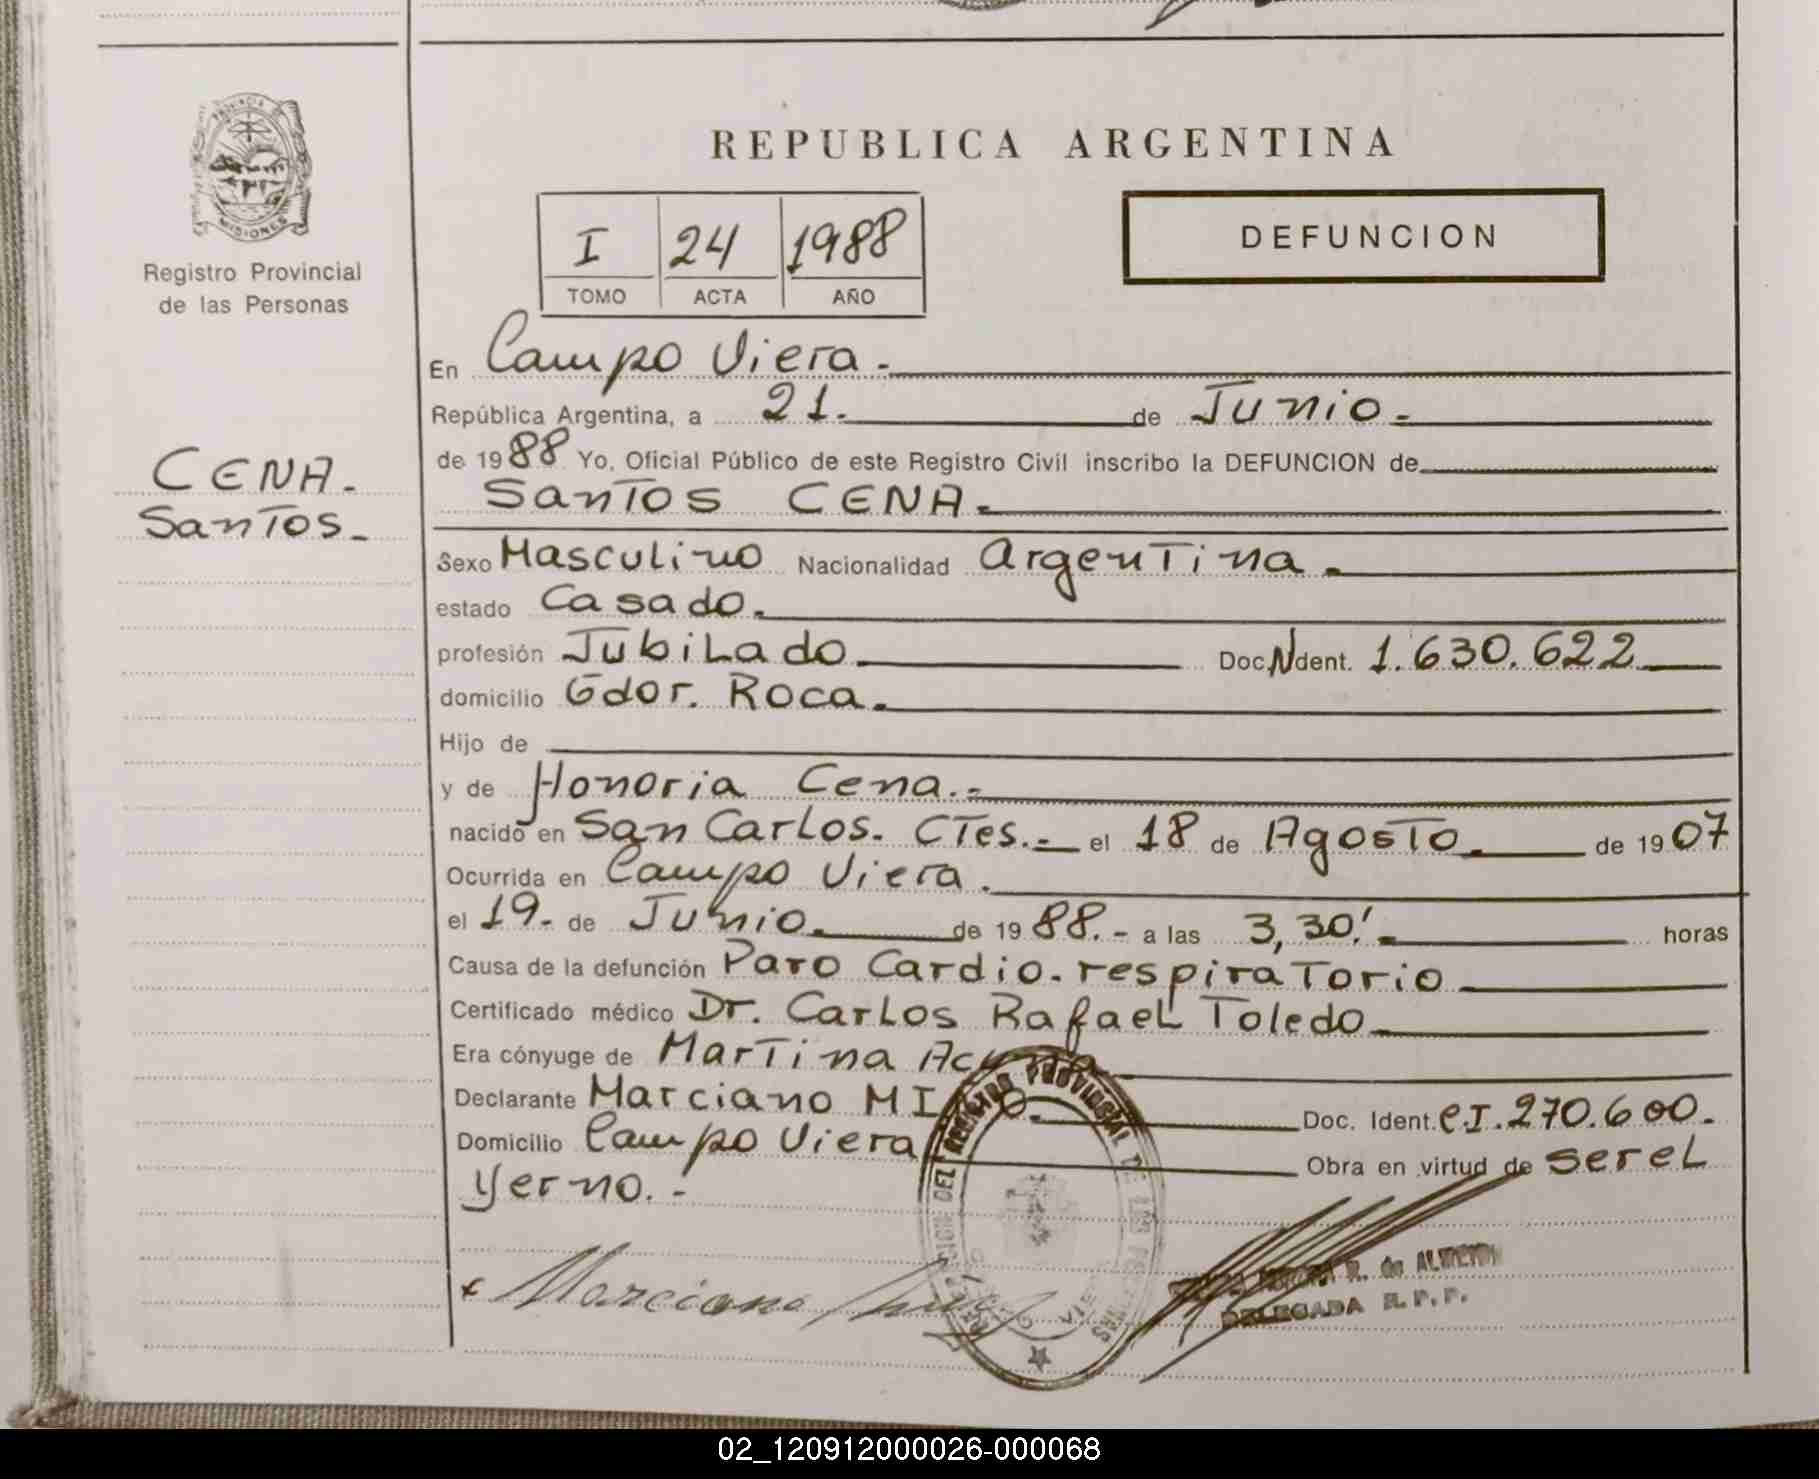 PROVINCIA DE
MISIONES
Registro Provincial
de las Personas
CENA.
Santos.
REPUBLICA ARGENTINA
I 24 1988
TOMO ACTA AÑO
DEFUNCION
En Campo Viera.
República Argentina, a 21. de Junio.
de 1988 Yo, Oficial Público de este Registro Civil inscribo la DEFUNCION de
Santos CENA.
Sexo Masculino Nacionalidad Argentina.
estado Casado.
profesión Jubilado Doc. Ident. 1.630.622
domicilio Gdor. Roca.
Hijo de
y de Honoria Cena.-
nacido en San Carlos. Ctes.- el 18 de Agosto. de 1907
Ocurrida en Campo Viera.
el 19. de Junio. de 1988.- a las 3,30'.- horas
Causa de la defunción Paro Cardio-respiratorio
Certificado médico Dr. Carlos Rafael Toledo
Era cónyuge de Martina Acuña
Declarante Marciano MI
Doc. Ident. C.I. 270.600.
Domicilio Campo Viera Obra en virtud de serel
Yerno.-
Marciano
R. de
DELEGADA R.P.P.
REGISTRO PROVINCIAL DE LAS
02_120912000026-000068